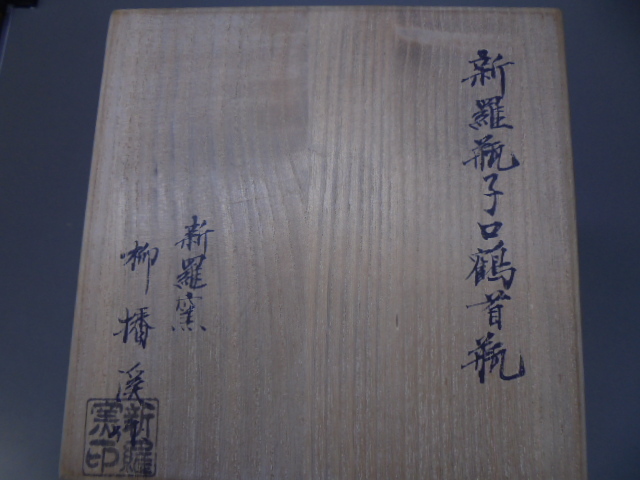 新羅瓶子口鶴首瓶
新羅窯
柳播溪
新羅
窯印